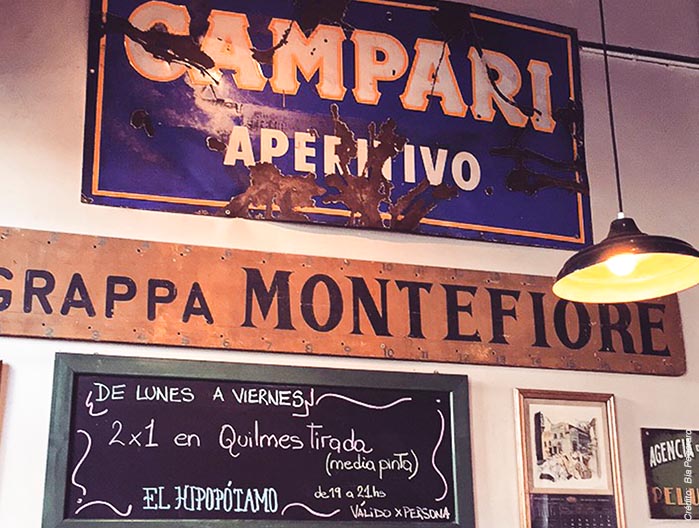 CAMPARI
APERITIVO
GRAPPA MONTEFIORE
DE LUNES A VIERNES
2x1 en Quilmes tirada
(media pinta)
EL HIPOPÓTAMO
de 19 a 21hs
VÁLIDO X PERSONA
AGENCIA